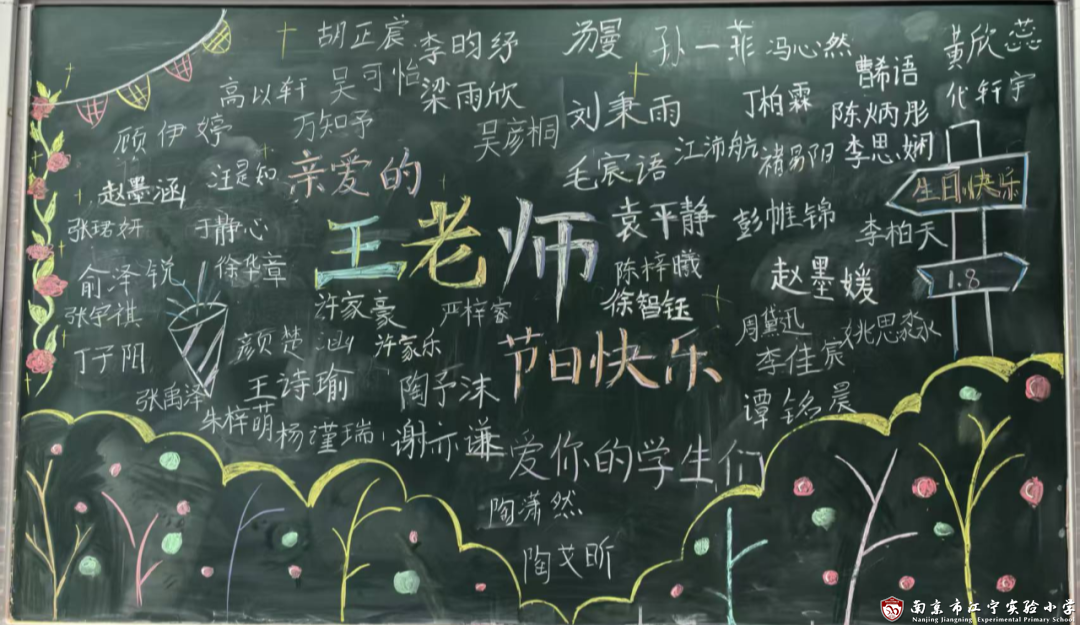 胡正宸
李昀纾
汤曼
孙一菲
冯心然
黄欣蕊
高以轩
吴可怡
梁雨欣
曹希语
代轩宇
顾伊婷
万知予
吴彦桐
刘秉雨
丁柏霖
陈炳彤
赵墨涵
汪是知
亲爱的
毛宸语
江沛航
褚易阳
李思娴
生日快乐
张珺妍
于静心
王老师
袁平静
彭帷锦
李柏天
俞泽锐
徐华章
陈梓曦
赵墨媛
1.8
张宇祺
许家豪
严梓睿
徐智钰
周黛迅
姚思淼
丁子阳
颜楚涵
许家乐
节日快乐
李佳宸
张禹泽
王诗瑜
陶予沫
谭铭晨
朱梓萌
杨谨瑞
谢亦谦
爱你的学生们
陶潇然
陶艾昕
南京市江宁实验小学
Nanjing Jiangning Experimental Primary School